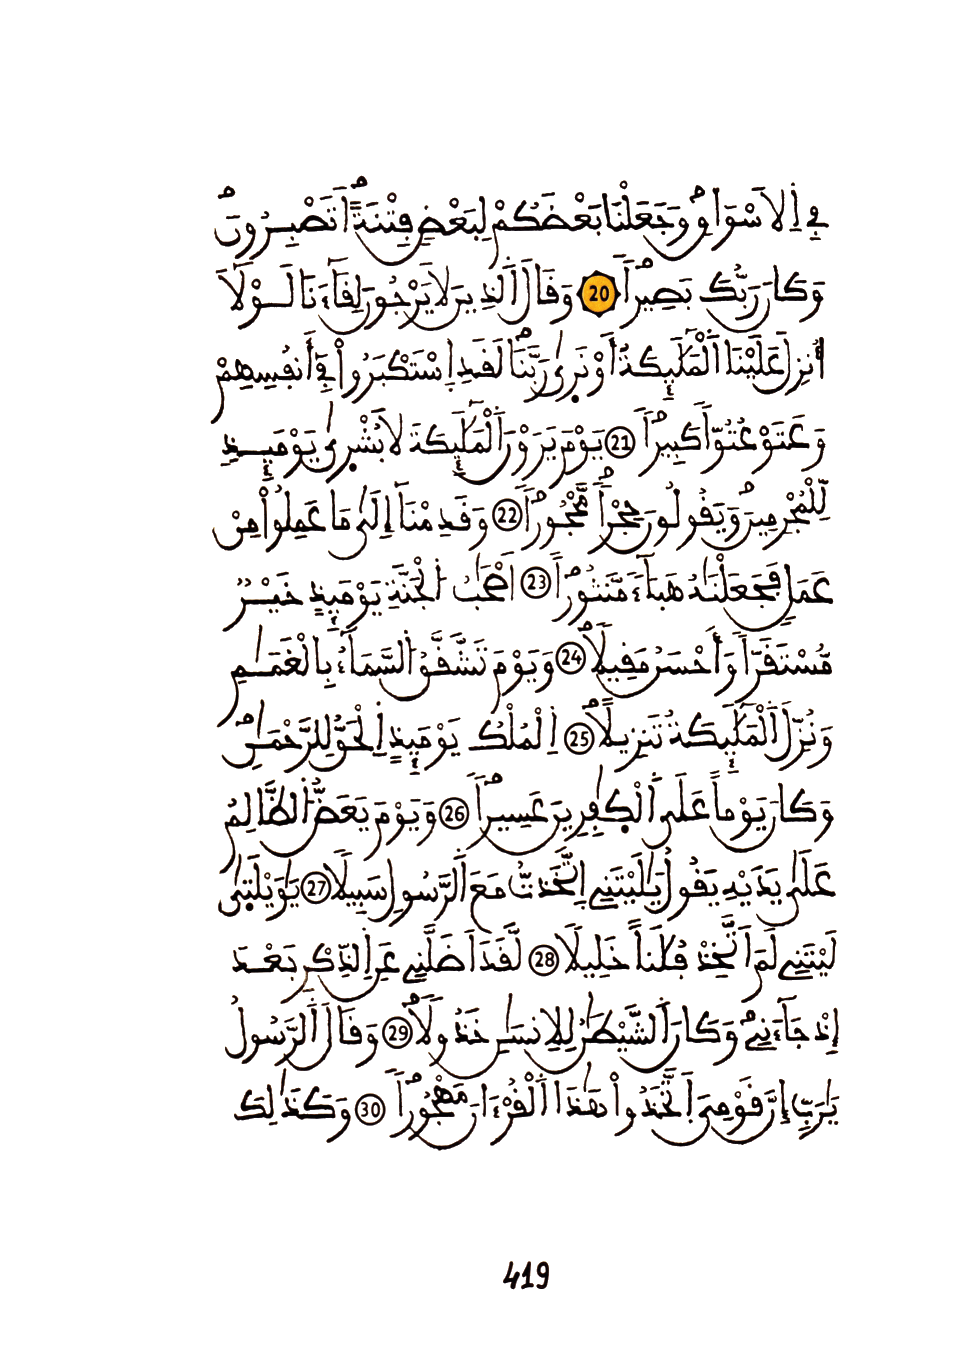 فِي اِ۬لَاسْوَاقِۖ وَجَعَلْنَا بَعْضَكُمْ لِبَعْضٖ فِتْنَةًۖ اَتَصْبِرُونَۖ
وَكَانَ رَبُّكَ بَصِيراٗۖ 20 وَقَالَ اَ۬لذِينَ لَا يَرْجُونَ لِقَآءَنَا لَوْلَآ
أُنزِلَ عَلَيْنَا اَ۬لْمَلَٰٓئِكَةُ أَوْ نَر۪يٰ رَبَّنَاۖ لَقَدِ اِ۪سْتَكْبَرُواْ فِےٓ أَنفُسِهِمْ
وَعَتَوْ عُتُوّاٗ كَبِيراٗ 21 يَوْمَ يَرَوْنَ اَ۬لْمَلَٰٓئِكَةَ لَا بُشْر۪يٰ يَوْمَئِذٖ
لِّلْمُجْرِمِينَۖ وَيَقُولُونَ حِجْراٗ مَّحْجُوراٗۖ 22 وَقَدِمْنَآ إِلَىٰ مَا عَمِلُواْ مِنْ
عَمَلٖ فَجَعَلْنَٰهُ هَبَآءٗ مَّنثُوراًۖ 23 اَصْحَٰبُ اُ۬لْجَنَّةِ يَوْمَئِذٍ خَيْرٞ
مُّسْتَقَرّاٗ وَأَحْسَنُ مَقِيلاٗۖ 24 وَيَوْمَ تَشَّقَّقُ اُ۬لسَّمَآءُ بِالْغَمَٰمِ
وَنُزِّلَ اَ۬لْمَلَٰٓئِكَةُ تَنزِيلاًۖ 25 اِ۬لْمُلْكُ يَوْمَئِذٍ اِ۬لْحَقُّ لِلرَّحْمَٰنِۖ
وَكَانَ يَوْماً عَلَى اَ۬لْكٰ۪فِرِينَ عَسِيراٗۖ 26 وَيَوْمَ يَعَضُّ اُ۬لظَّالِمُ
عَلَىٰ يَدَيْهِ يَقُولُ يَٰلَيْتَنِے اِ۪تَّخَذتُّ مَعَ اَ۬لرَّسُولِ سَبِيلاٗ 27 يَٰوَيْلَت۪يٰ
لَيْتَنِے لَمَ اَتَّخِذْ فُلَٰناً خَلِيلاٗ 28 لَّقَدَ اَضَلَّنِے عَنِ اِ۬لذِّكْرِ بَعْدَ
إِذْ جَآءَنِےۖ وَكَانَ اَ۬لشَّيْطَٰنُ لِلِانسَٰنِ خَذُولاٗۖ 29 وَقَالَ اَ۬لرَّسُولُ
يَٰرَبِّ إِنَّ قَوْمِيَ اَ۪تَّخَذُواْ هَٰذَا اَ۬لْقُرْءَانَ مَهْجُوراٗۖ 30 وَكَذَٰلِكَ
419